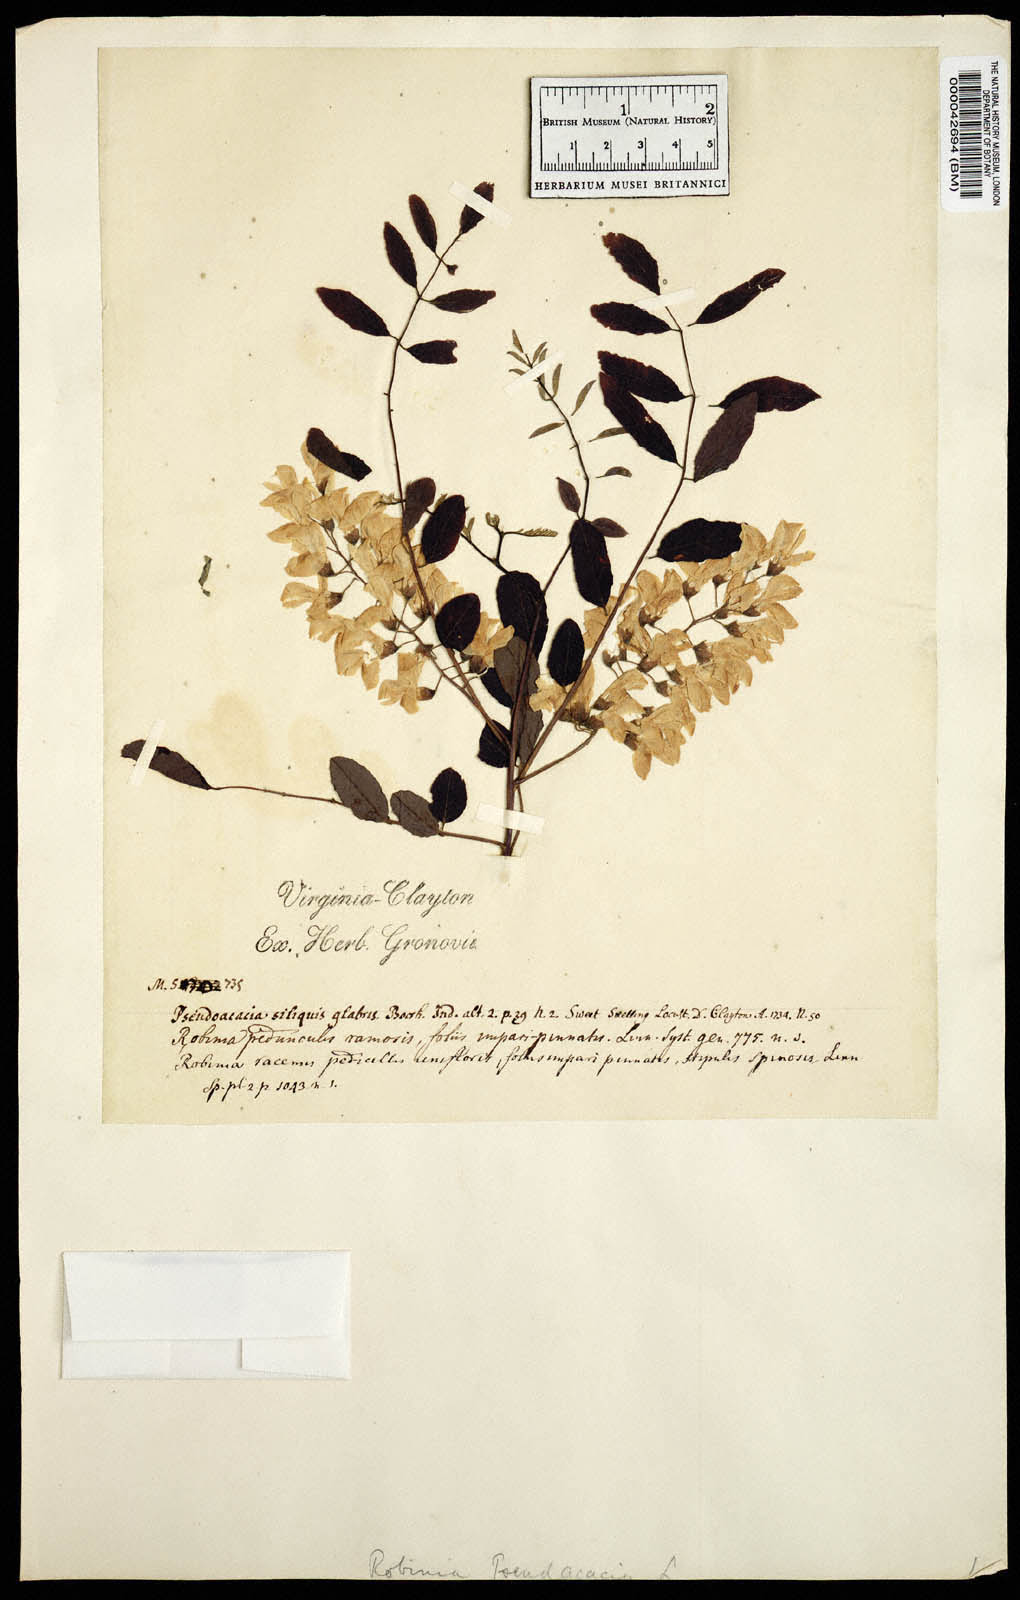 1 2
BRITISH MUSEUM (NATURAL HISTORY)
1 2 3 4 5
HERBARIUM MUSEI BRITANNICI
THE NATURAL HISTORY MUSEUM, LONDON
DEPARTMENT OF BOTANY
000042694 (BM)
Virginia-Clayton
Ex. Herb. Gronovii
M. 735
Pseudoacacia siliquis glabris Boerh. Ind. alt. 2. p. 39 n. 2 Sweet Smelling Locust. D. Clayton A. 1734. N. 50
Robinia pedunculis ramosis, foliis impari-pinnatis. Linn. Syst. gen. 775. n. 1.
Robinia racemis pedicellis unifloris, foliis impari pinnatis, stipulis spinosis Linn
Sp. pl 2 p 1043 n 1.
Robinia Pseudacacia L